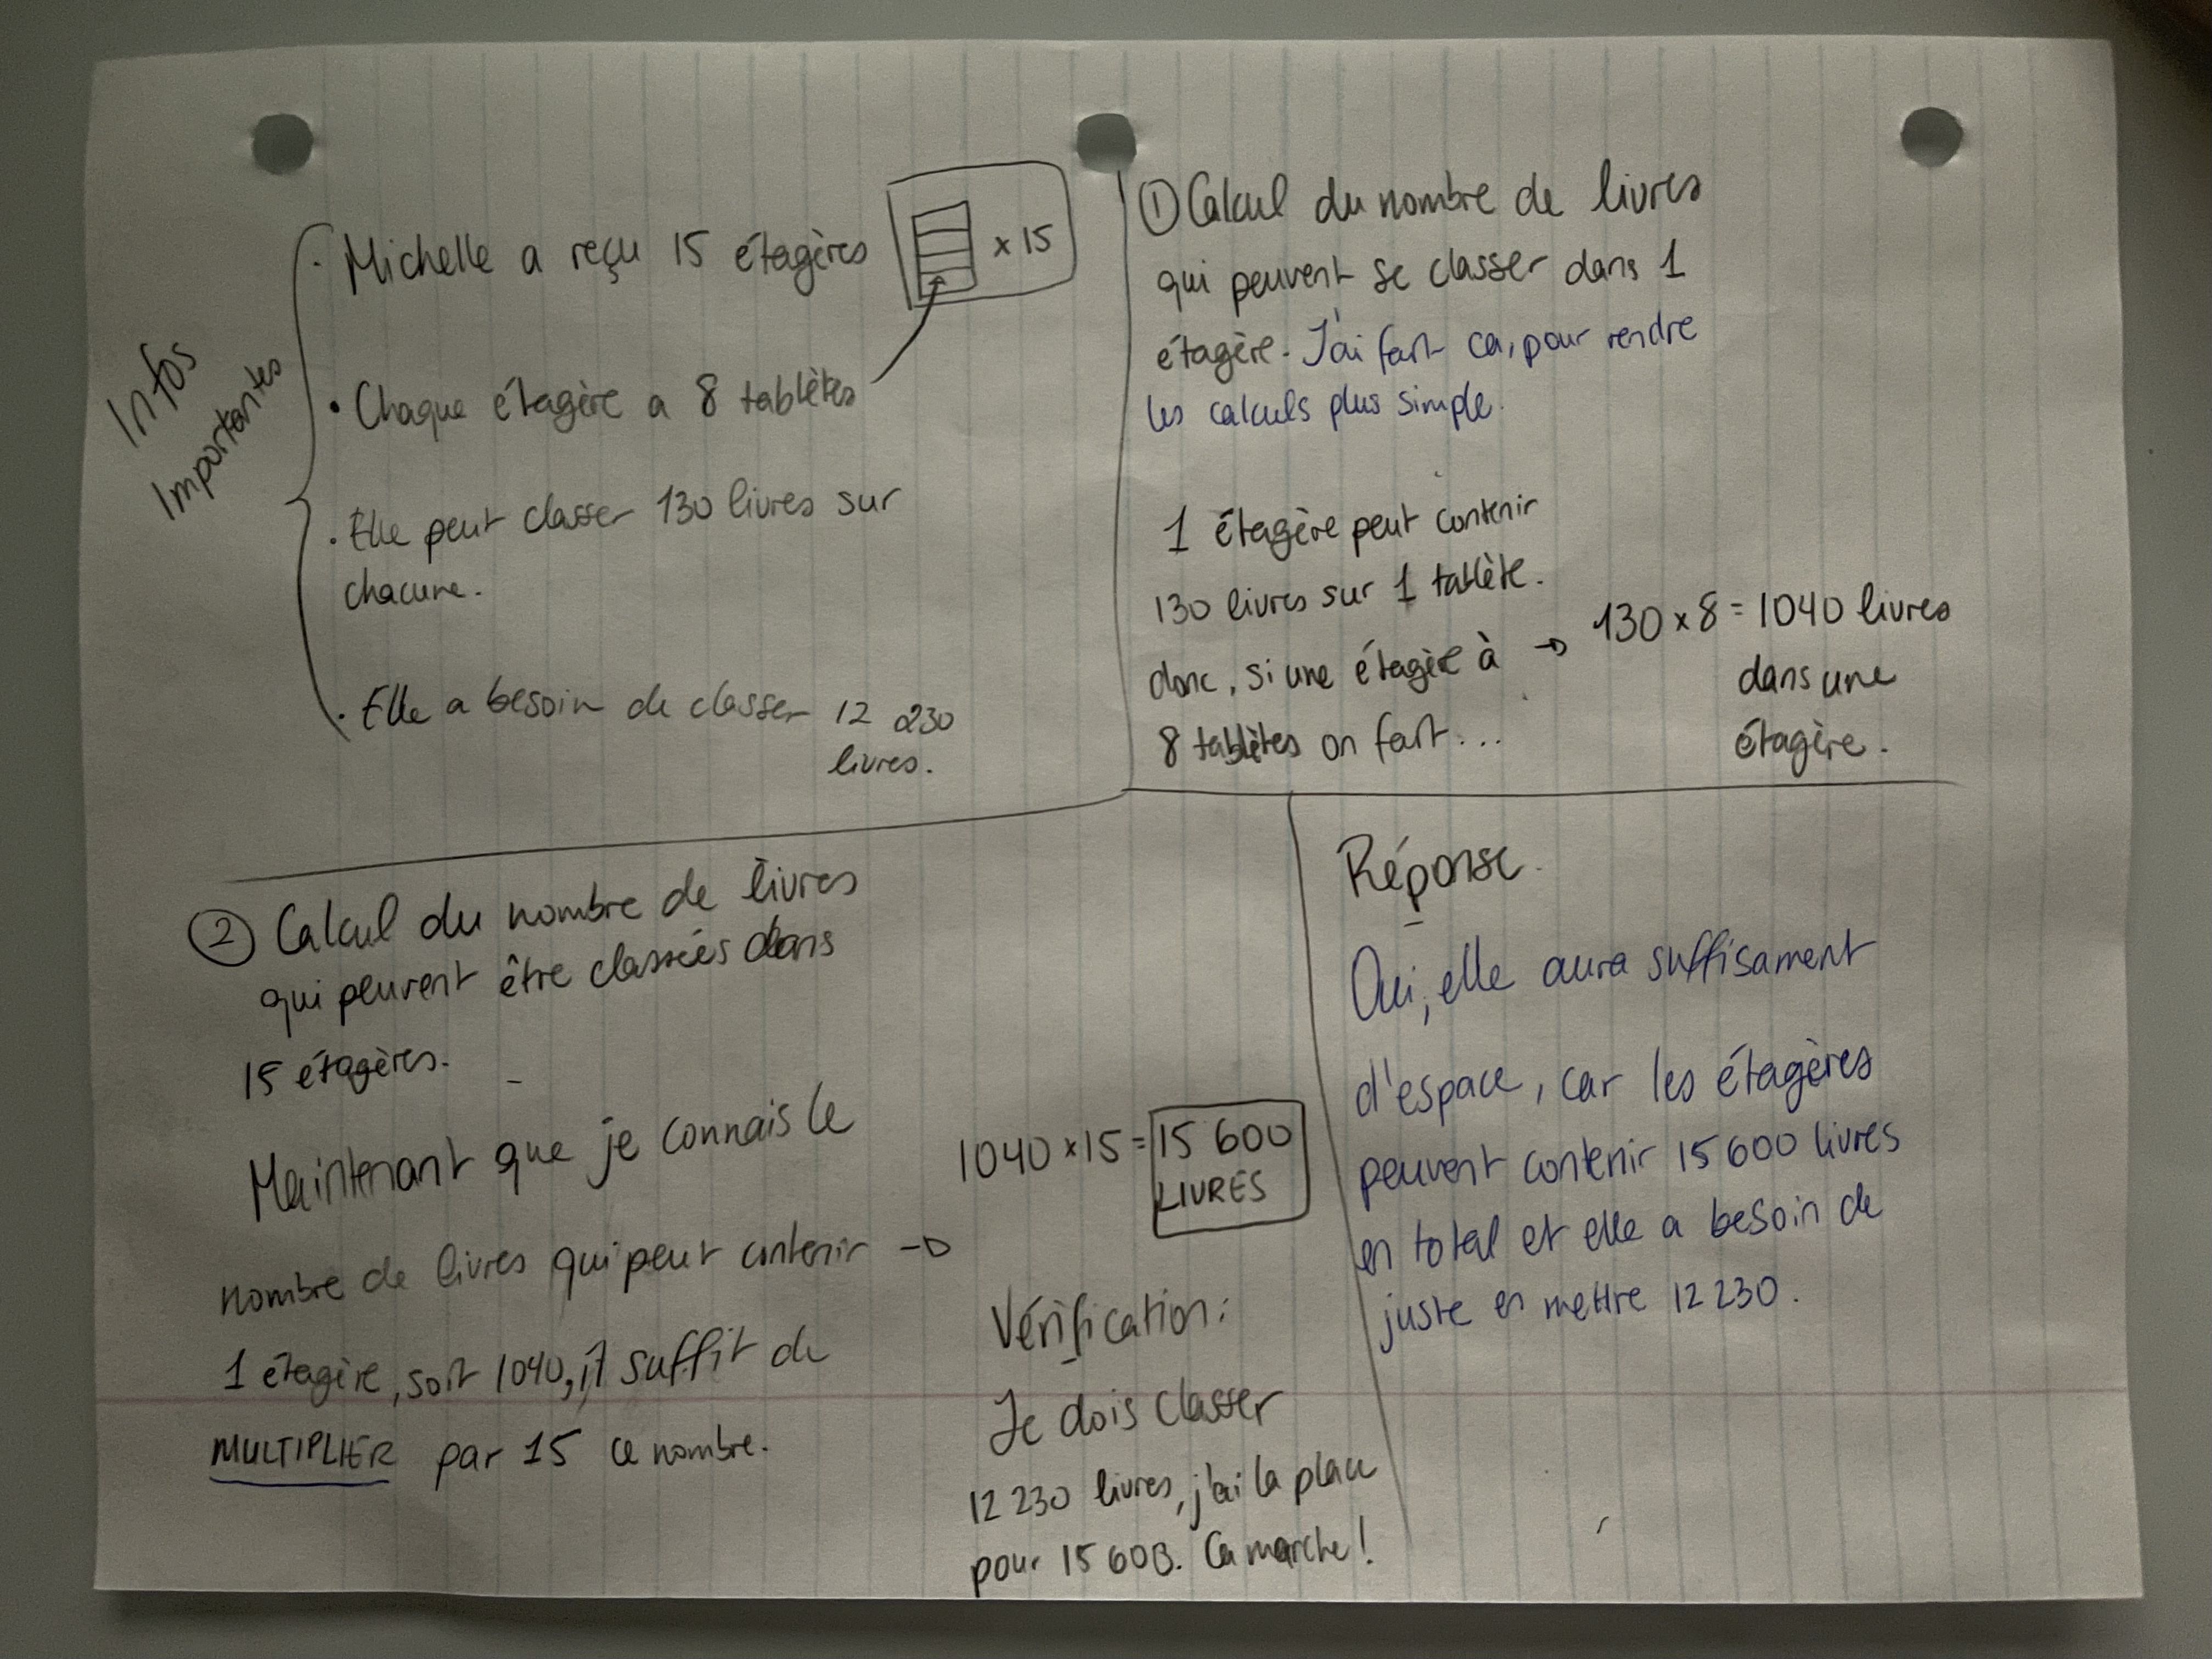 Infos
Importantes
· Michelle a reçu 15 étagères
x 15
• Chaque étagère a 8 tablètes
· Elle peut classer 130 livres sur
chacune.
· Elle a besoin de classer 12 230
livres.
① Calcul du nombre de livres
qui peuvent se classer dans 1
étagère. J'ai fait ca, pour rendre
les calculs plus simple.
1 étagère peut contenir
130 livres sur 1 tablète.
donc, si une étagère à → 130 x 8 = 1040 livres
dans une
étagère.
8 tablètes on fait...
② Calcul du nombre de livres
qui peuvent être classés dans
15 étagères.
Maintenant que je connais le
nombre de livres qui peut contenir →
1 étagère, soit 1040, il suffit de
MULTIPLIER par 15 ce nombre.
1040 x 15 = 15 600
LIVRES
Vérification:
Je dois classer
12 230 livres, j'ai la place
pour 15 600. Ca marche!
Réponse.
Oui, elle aura suffisament
d'espace, car les étagères
peuvent contenir 15 600 livres
en total et elle a besoin de
juste en mettre 12 230.